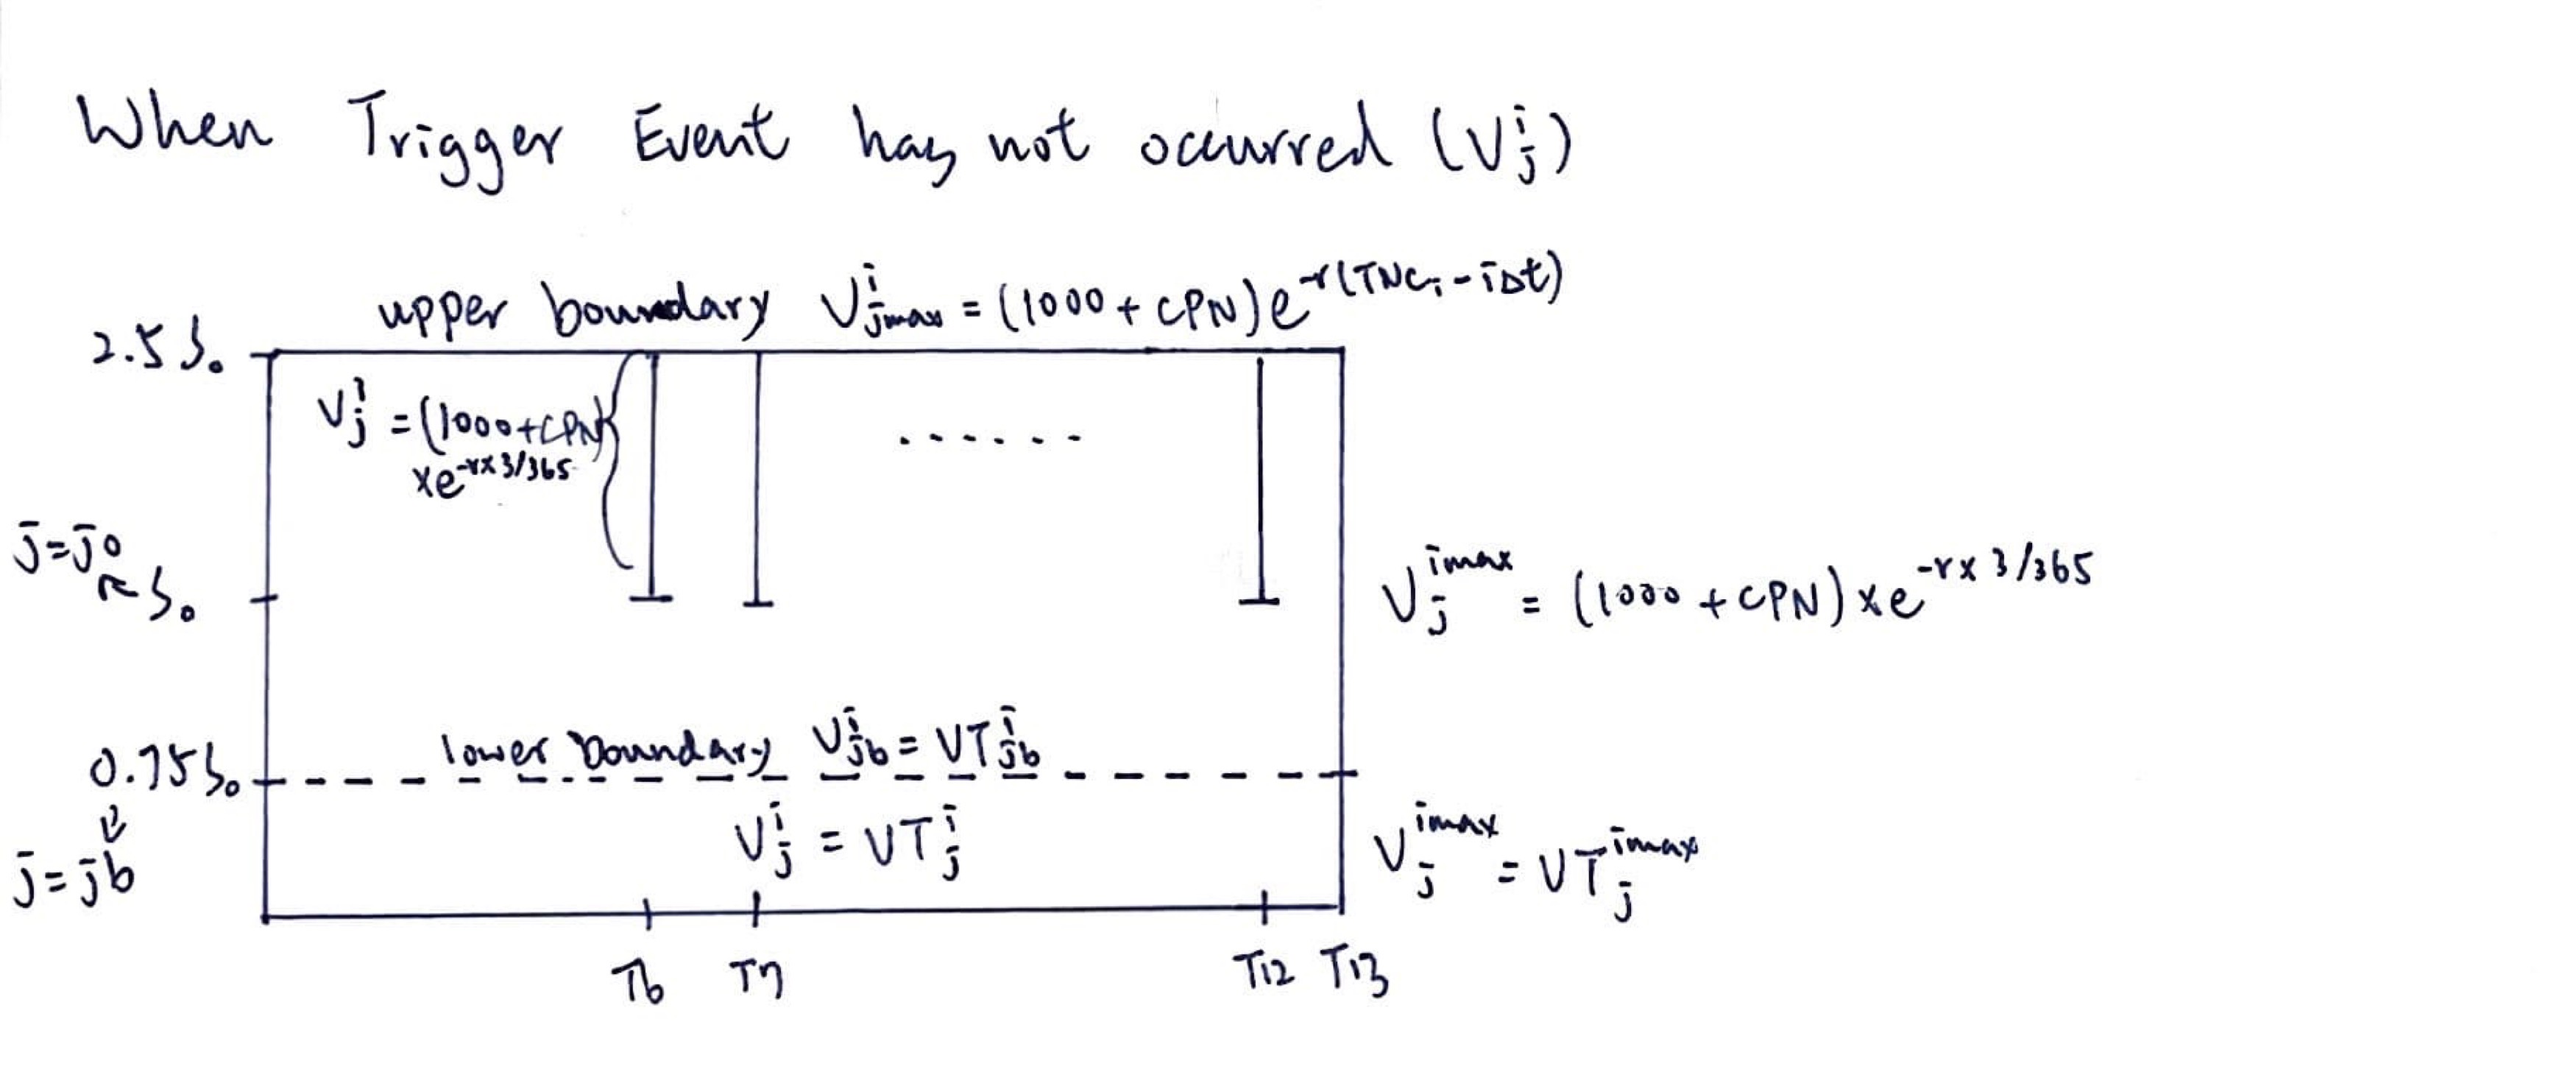 When Trigger Event has not occurred (V_j^i)
upper boundary V_jmax^i = (1000 + CPN) e^-r(TNC_i - iΔt)
2.5 S_0
V_j^i = (1000 + CPN)
x e^-r x 3/365
......
j = j0
S_0
V_j^imax = (1000 + CPN) x e^-r x 3/365
lower boundary V_jb^i = VT_jb^i
0.75 S_0
V_j^i = VT_j^i
V_j^imax = VT_j^imax
j = jb
T6 T7 T12 T13